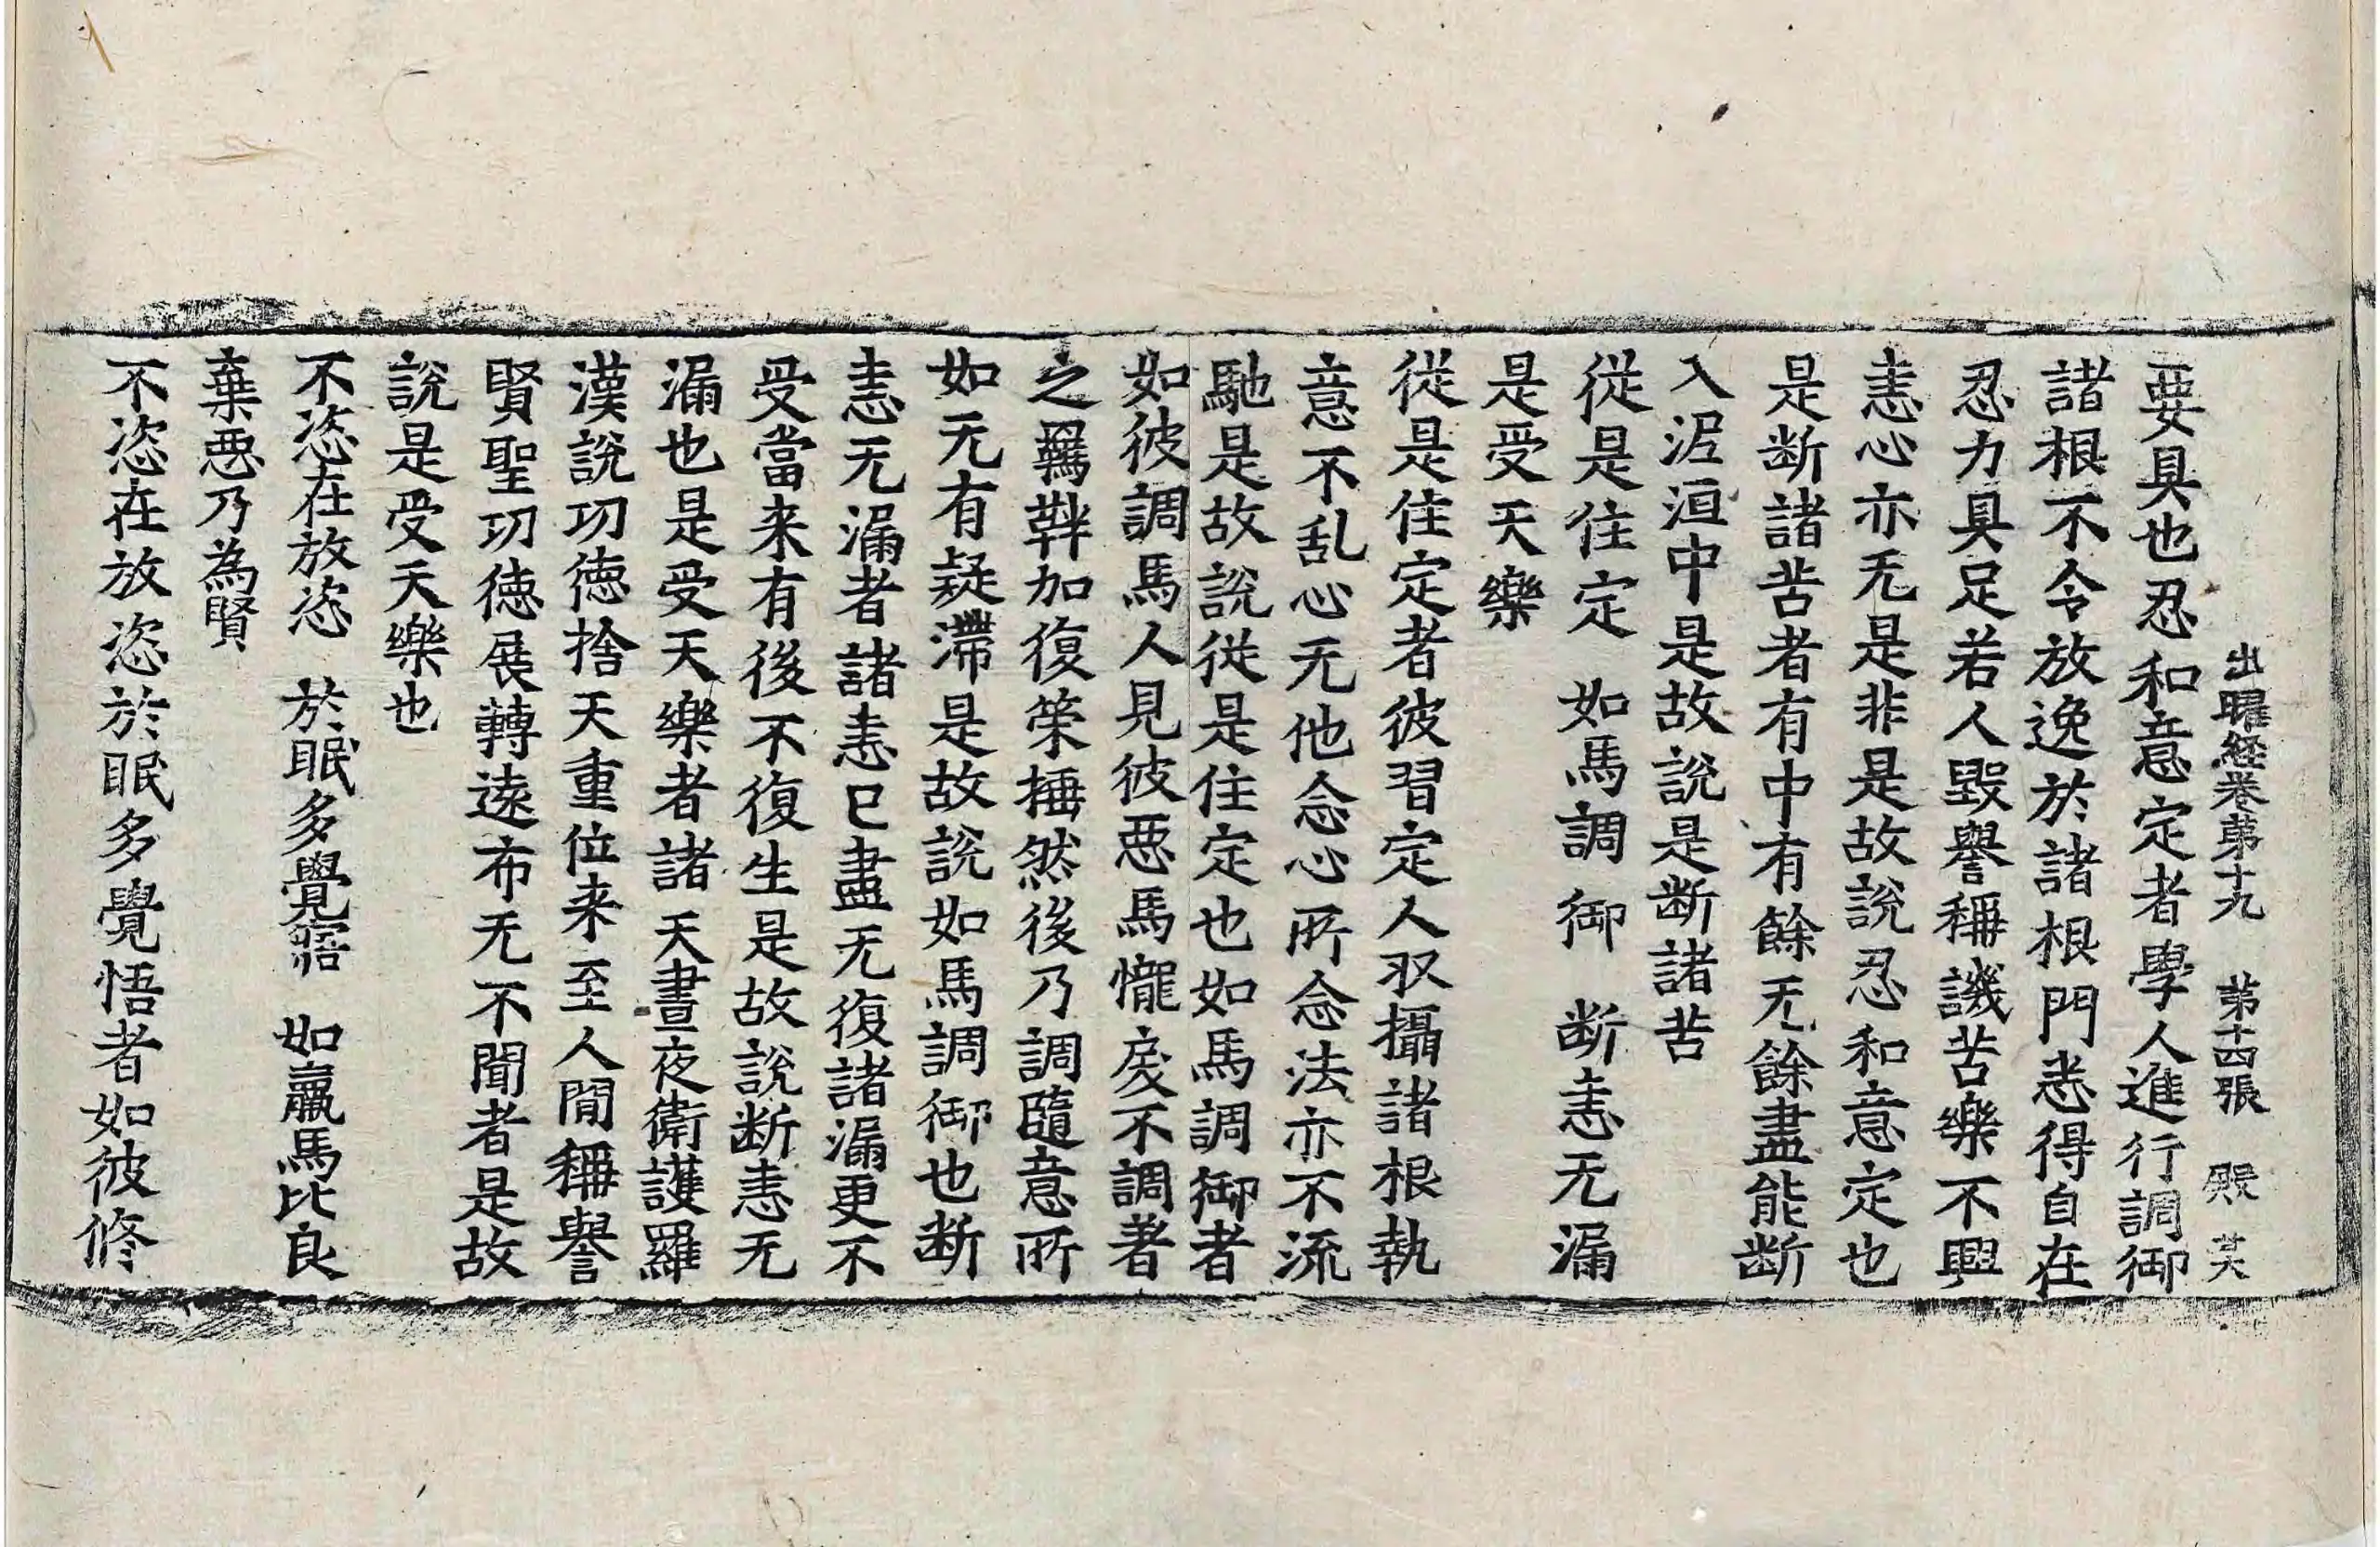 出曜経卷苐十九　苐十四張　殿
要具也忍和意定者學人進行調御
諸根不令放逸於諸根門悉得自在
忍力具足若人毀譽稱譏苦樂不興
恚心亦无是非是故說忍和意定也
是断諸苦者有中有餘无餘盡能断
入泥洹中是故說是断諸苦
從是住定　如馬調御　断恚无漏
是受天樂
從是住定者彼習定人収攝諸根執
意不乱心无他念心所念法亦不流
馳是故說從是住定也如馬調御者
如彼調馬人見彼惡馬𢤱戾不調著
之羈靽加復策捶然後乃調隨意所
如无有疑滯是故說如馬調御也断
恚无漏者諸恚已盡无復諸漏更不
受當来有後不復生是故說断恚无
漏也是受天樂者諸天晝夜衛護羅
漢說功徳捨天重位来至人間稱譽
賢聖功徳展轉遠布无不聞者是故
說是受天樂也
不恣在放恣　於眠多覺寤　如羸馬比良
棄惡乃為賢
不恣在放恣於眠多覺悟者如彼修